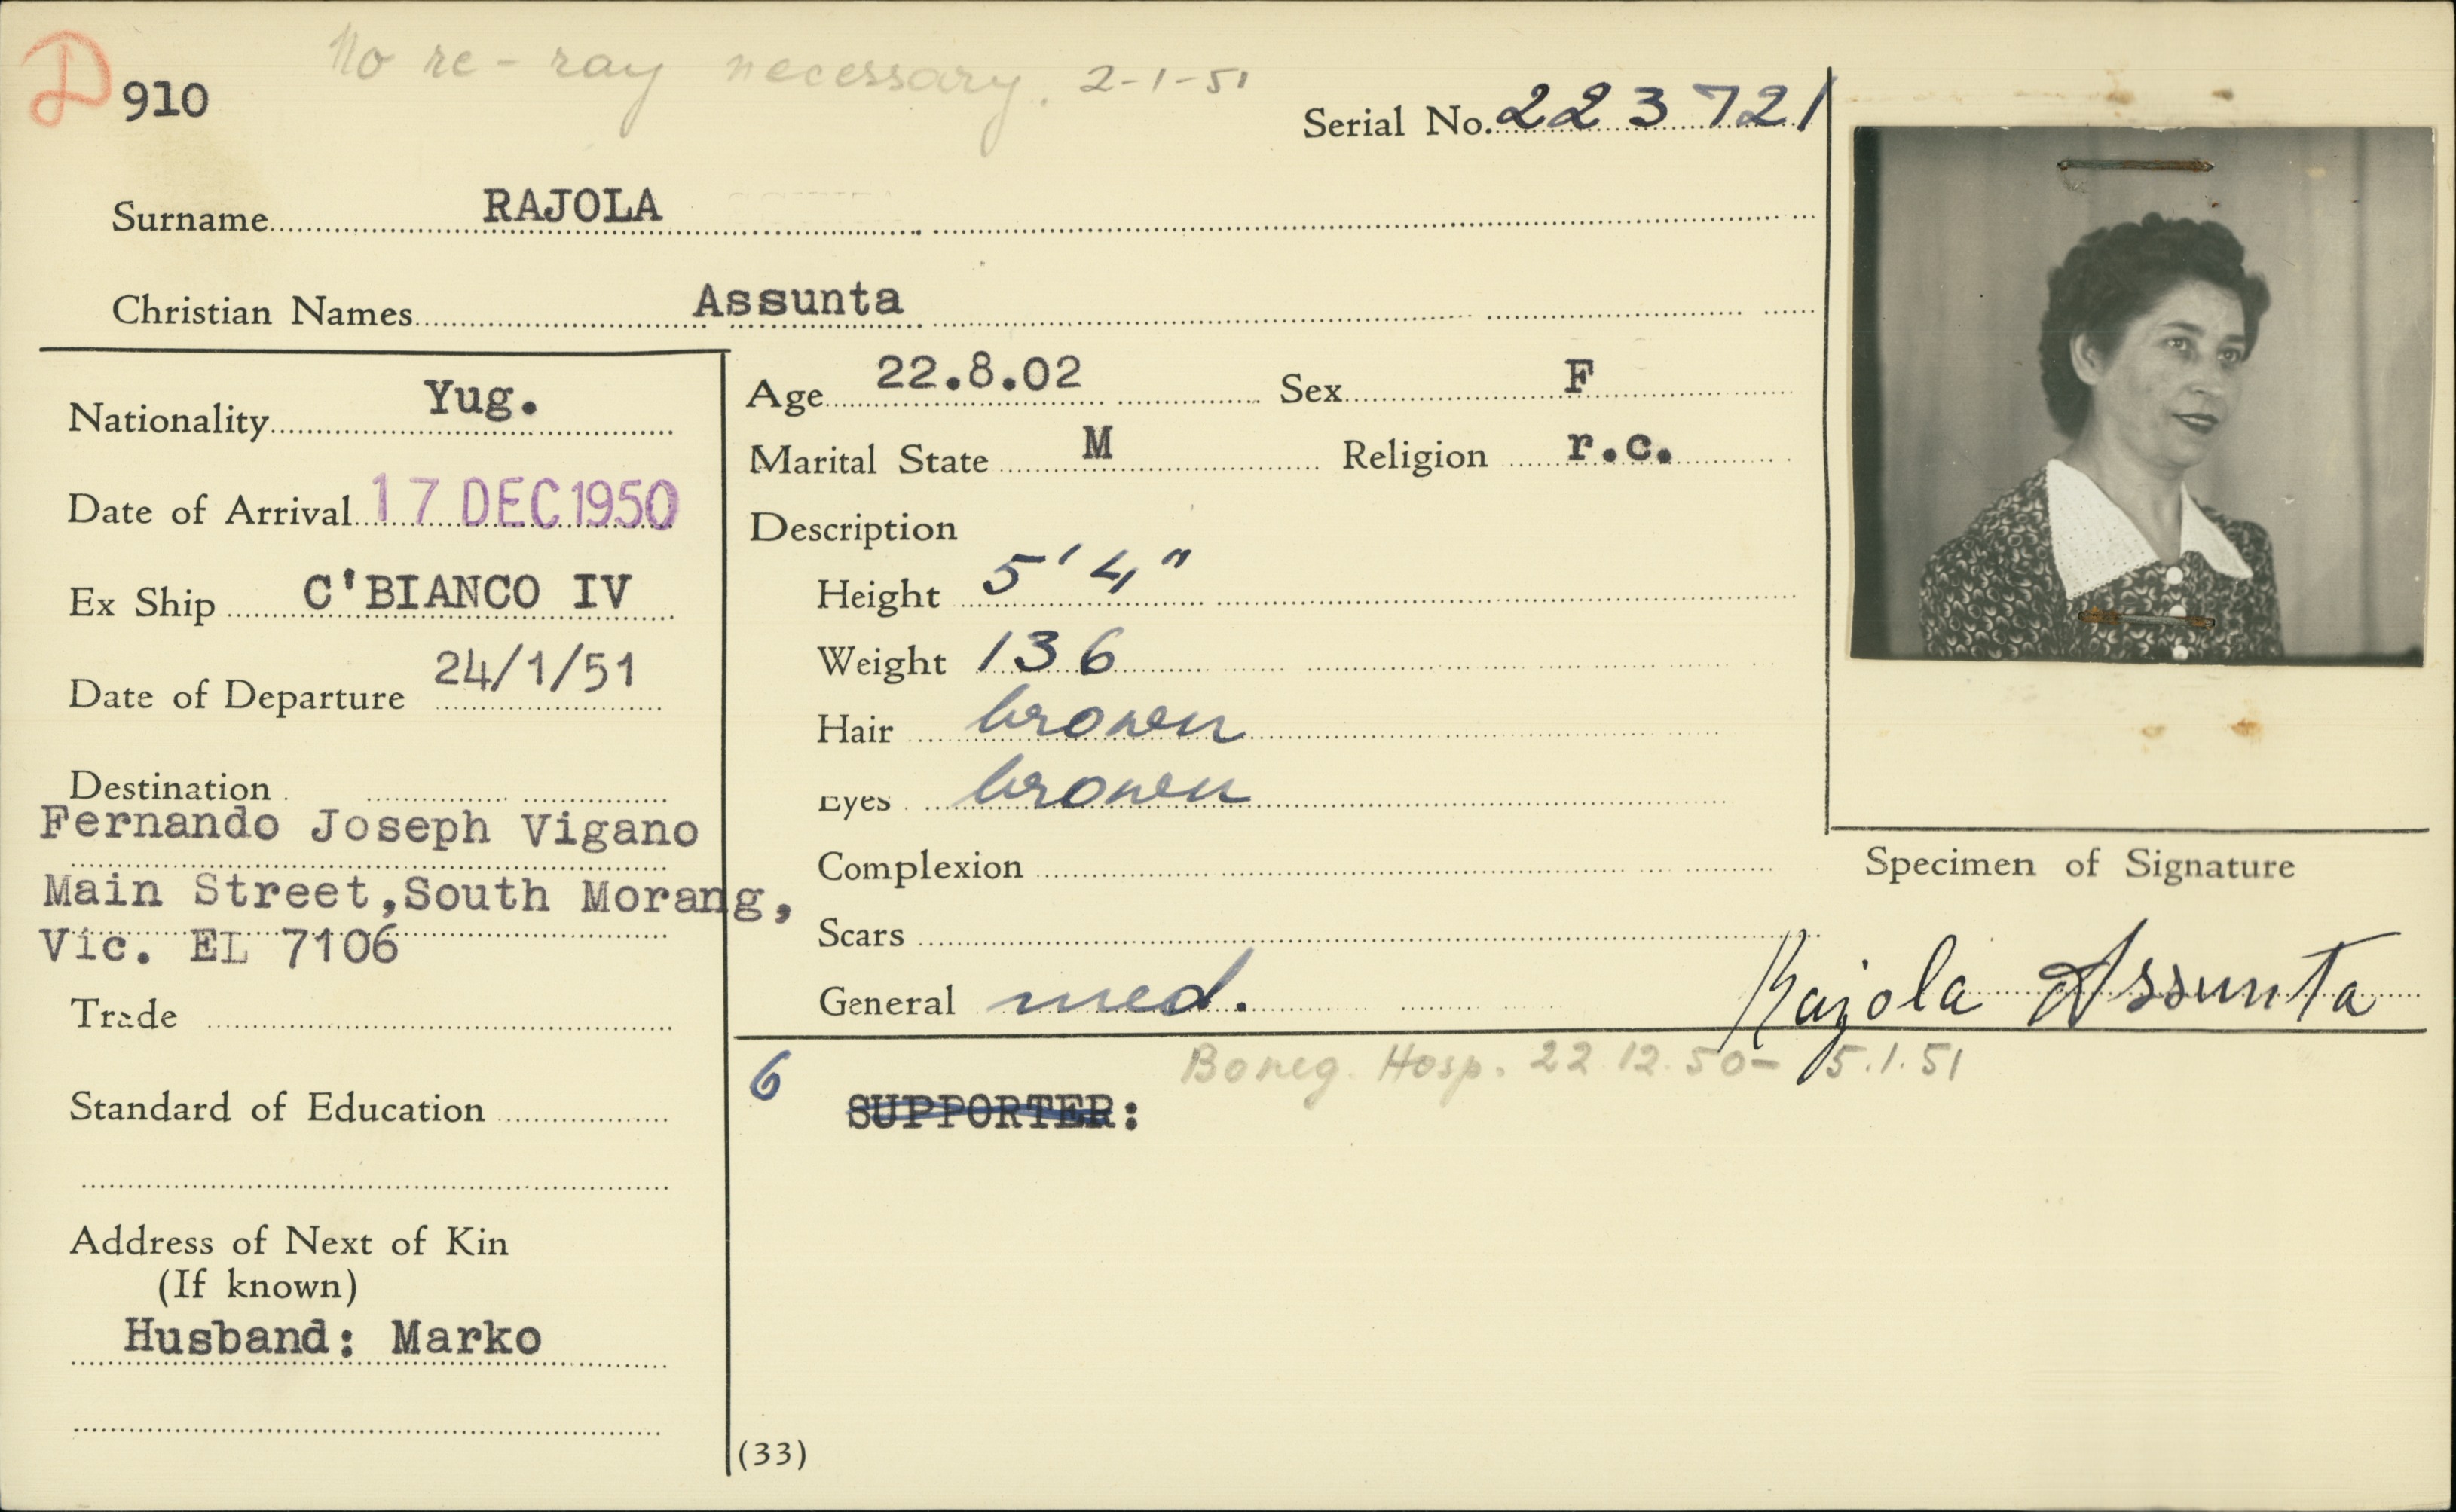 D 910 No re-ray necessary. 2-1-51
Serial No. 223721
Surname RAJOLA
Christian Names Assunta
Nationality Yug.
Date of Arrival 17 DEC 1950
Ex Ship C'BIANCO IV
Date of Departure 24/1/51
Destination
Fernando Joseph Vigano
Main Street, South Morang,
Vic. EL 7106
Trade
Standard of Education
Address of Next of Kin
(If known)
Husband: Marko
Age 22.8.02 Sex F
Marital State M Religion r.c.
Description
Height 5' 4"
Weight 136
Hair brown
Eyes brown
Complexion
Scars
General med.
Specimen of Signature
Rajola Assunta
6 Boneg. Hosp. 22.12.50- 5.1.51
SUPPORTER:
(33)